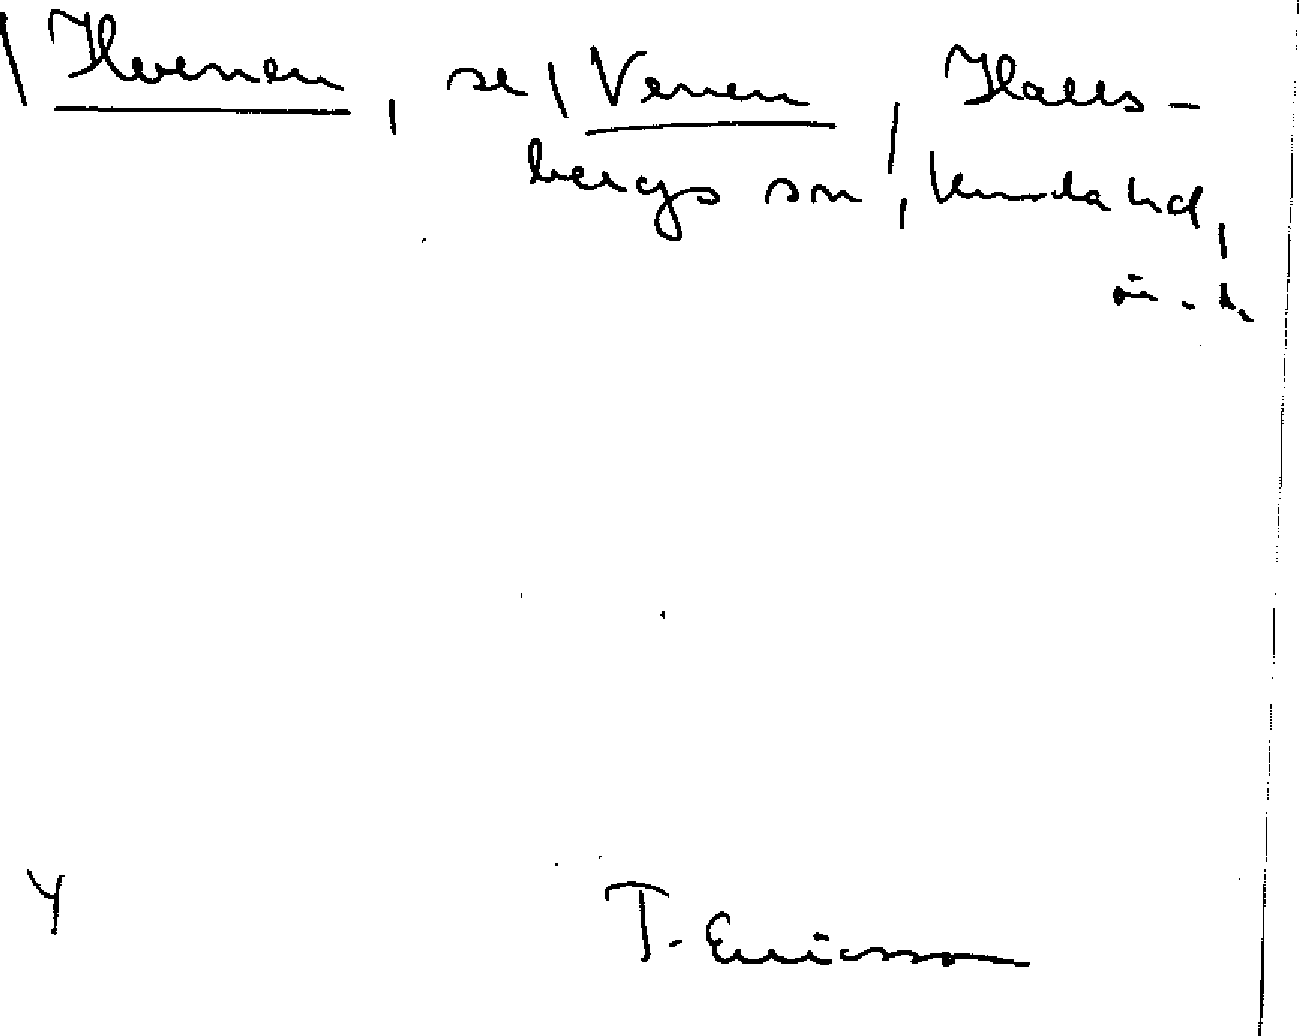 \ Hvenen, se \ Venen, Halls-
bergs sn, Kumla hd,
n. l.
Y
T. Ericsson